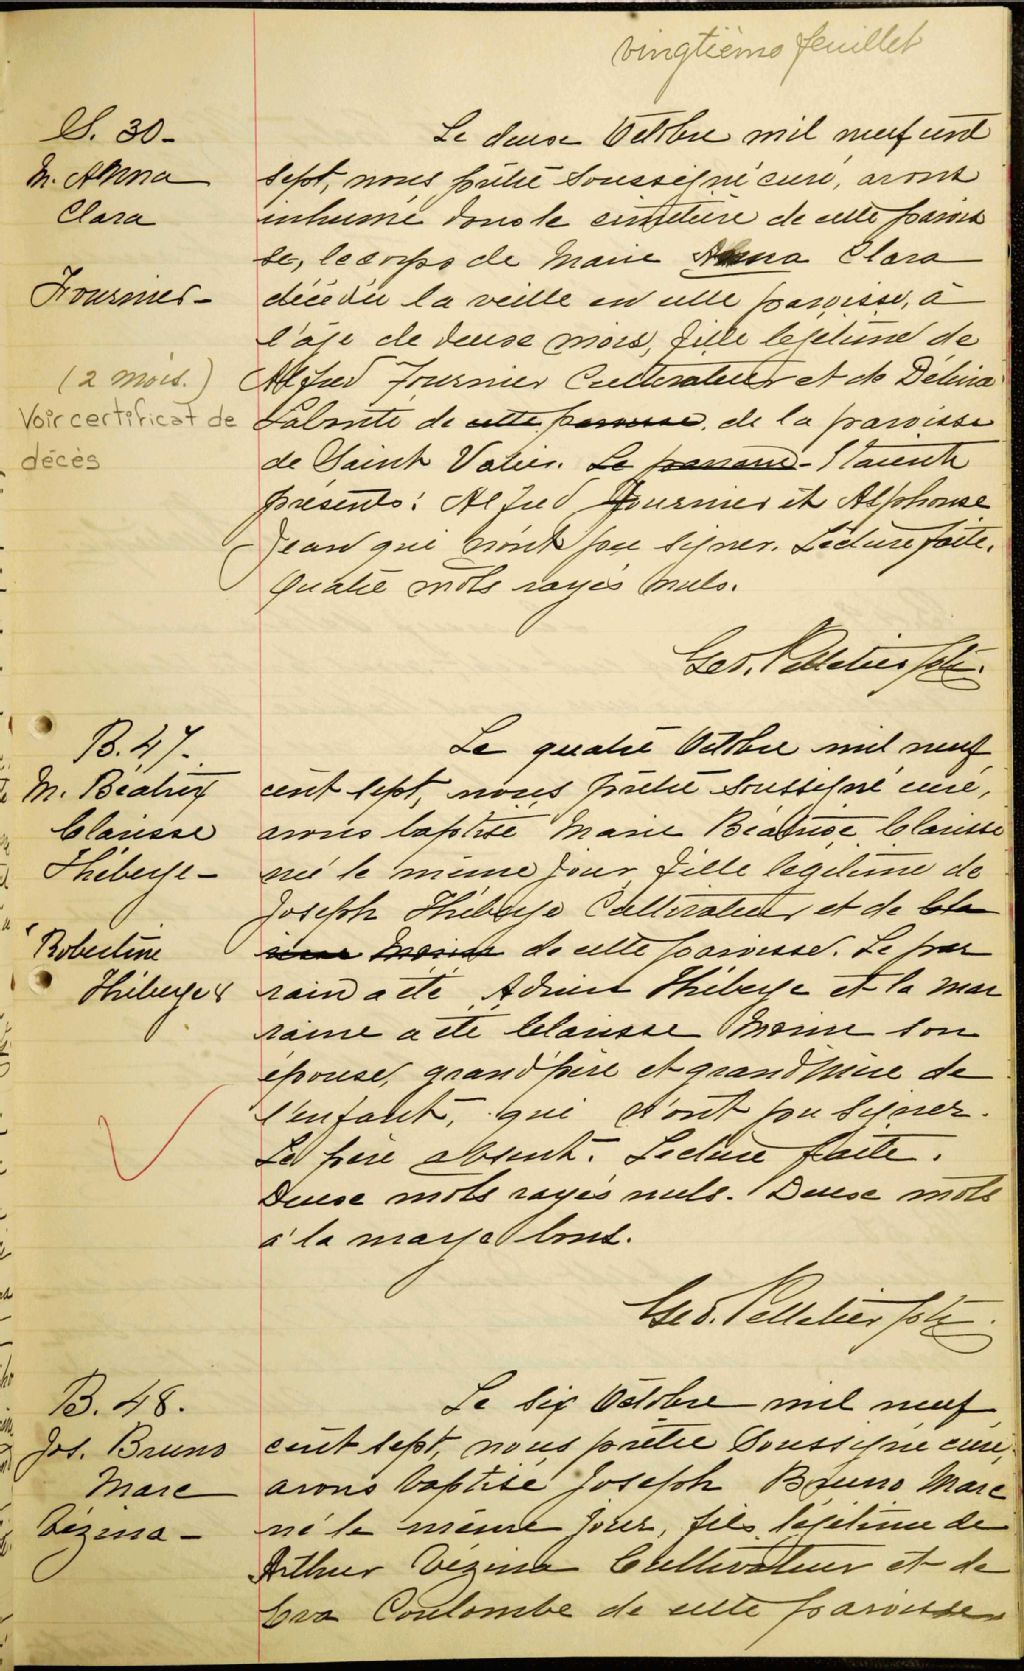 vingtième feuillet
S. 30-
M. Anna
Clara
Fournier-
(2 mois.)
Voir certificat de
décès
Le deux Octobre mil neuf cent
sept, nous prêtre soussigné curé, avons
inhumé dans le cimetière de cette parois
se, le corps de Marie Anna Clara
décédée la veille en cette paroisse, à
l'âge de deux mois, fille légitime de
Alfred Fournier Cultivateur et de Délina
Labonté de cette paroisse. de la paroisse
de Saint Valier. Le parrain - Etaient
présents: Alfred Fournier et Alphonse
Jean qui n'ont pu signer. Lecture faite.
Quatre mots rayés nuls.
Geo. Pelletier Ptr.
B. 47.
M. Béatrix
Clarisse
Théberge-
Robertine
Théberge &
Le quatre Octobre mil neuf
cent sept, nous prêtre soussigné curé,
avons baptisé Marie Béatrice Clarisse
né le même jour fille légitime de
Joseph Théberge Cultivateur et de Cla
risse Morin de cette paroisse. Le par
rain a été Adrien Théberge et la mar
raine a été Clarisse Morin son
épouse, grand'père et grand'mère de
l'enfant, qui n'ont pu signer.
Le père absent. Lecture faite.
Deux mots rayés nuls. Deux mots
à la marge bons.
Geo. Pelletier Ptr.
B. 48.
Jos. Bruno
Marc
Vézina-
Le six Octobre mil neuf
cent sept, nous prêtre soussigné curé,
avons baptisé Joseph Bruno Marc
né le même jour, fils légitime de
Arthur Vézina Cultivateur et de
Eva Coulombe de cette paroisse